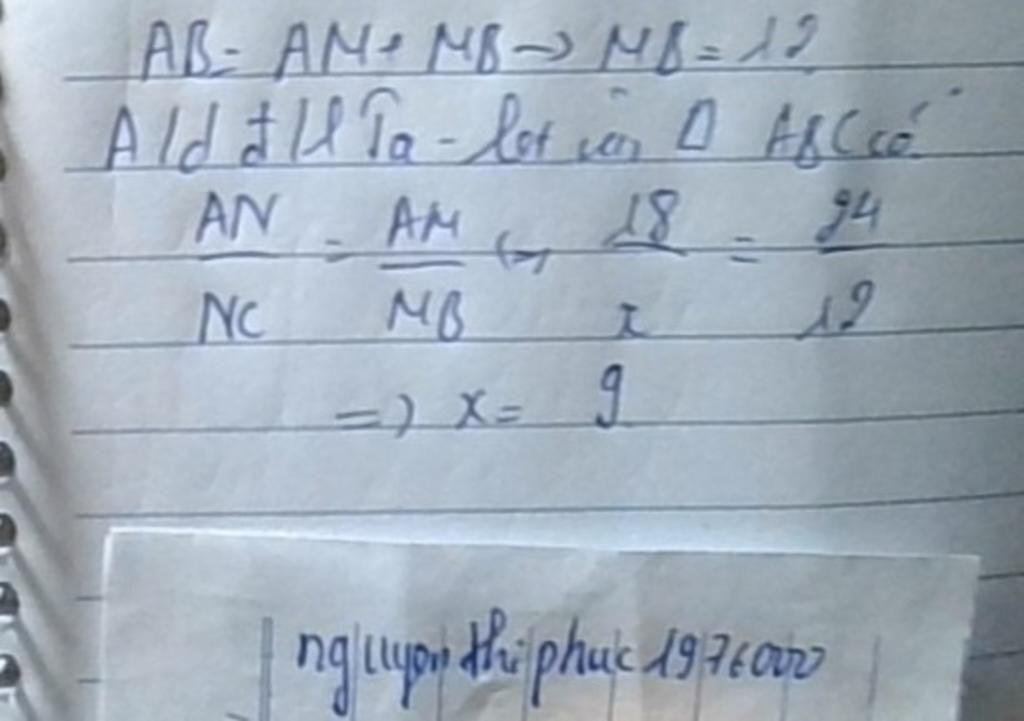 AB = AM + MB → MB = 12
A/d đ/l Ta-let với Δ ABC có
AN/NC = AM/MB ↔ 18/x = 24/12
=> x = 9
nguyen thi phuc 1976000